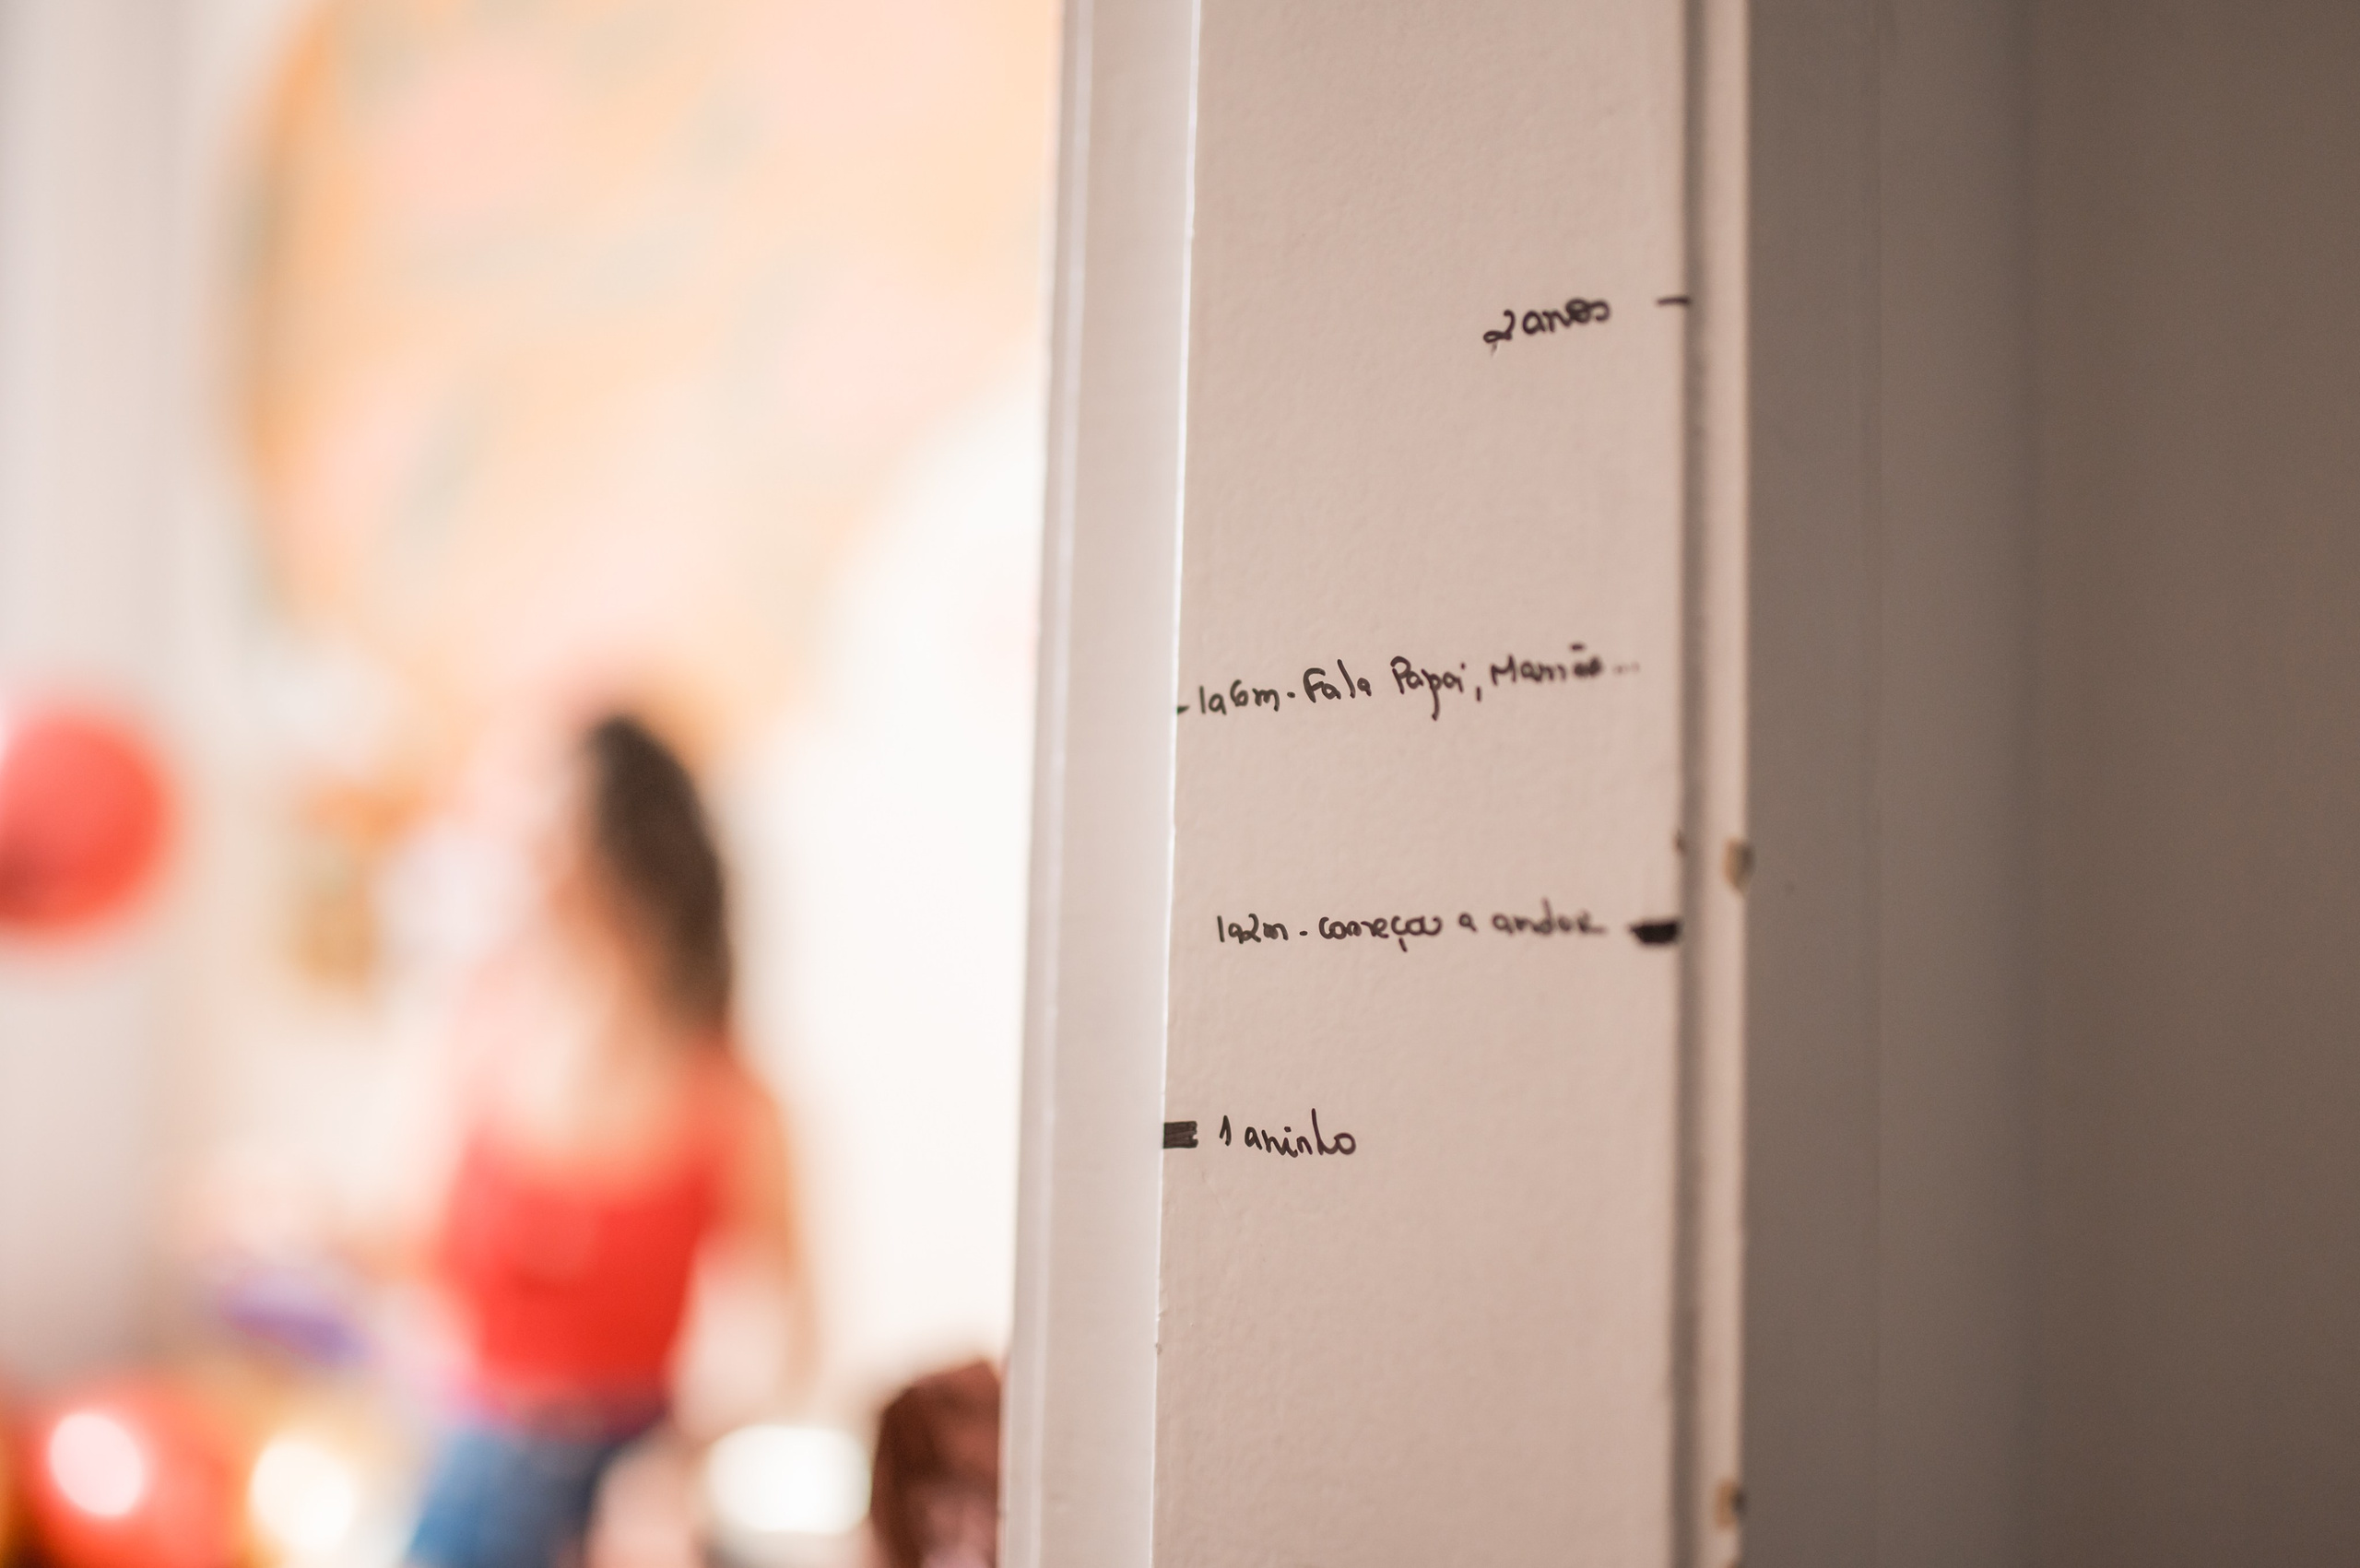 2 anos
1a6m. Fala Papai, Mamãe...
1a2m. começou a andar
1 aninho